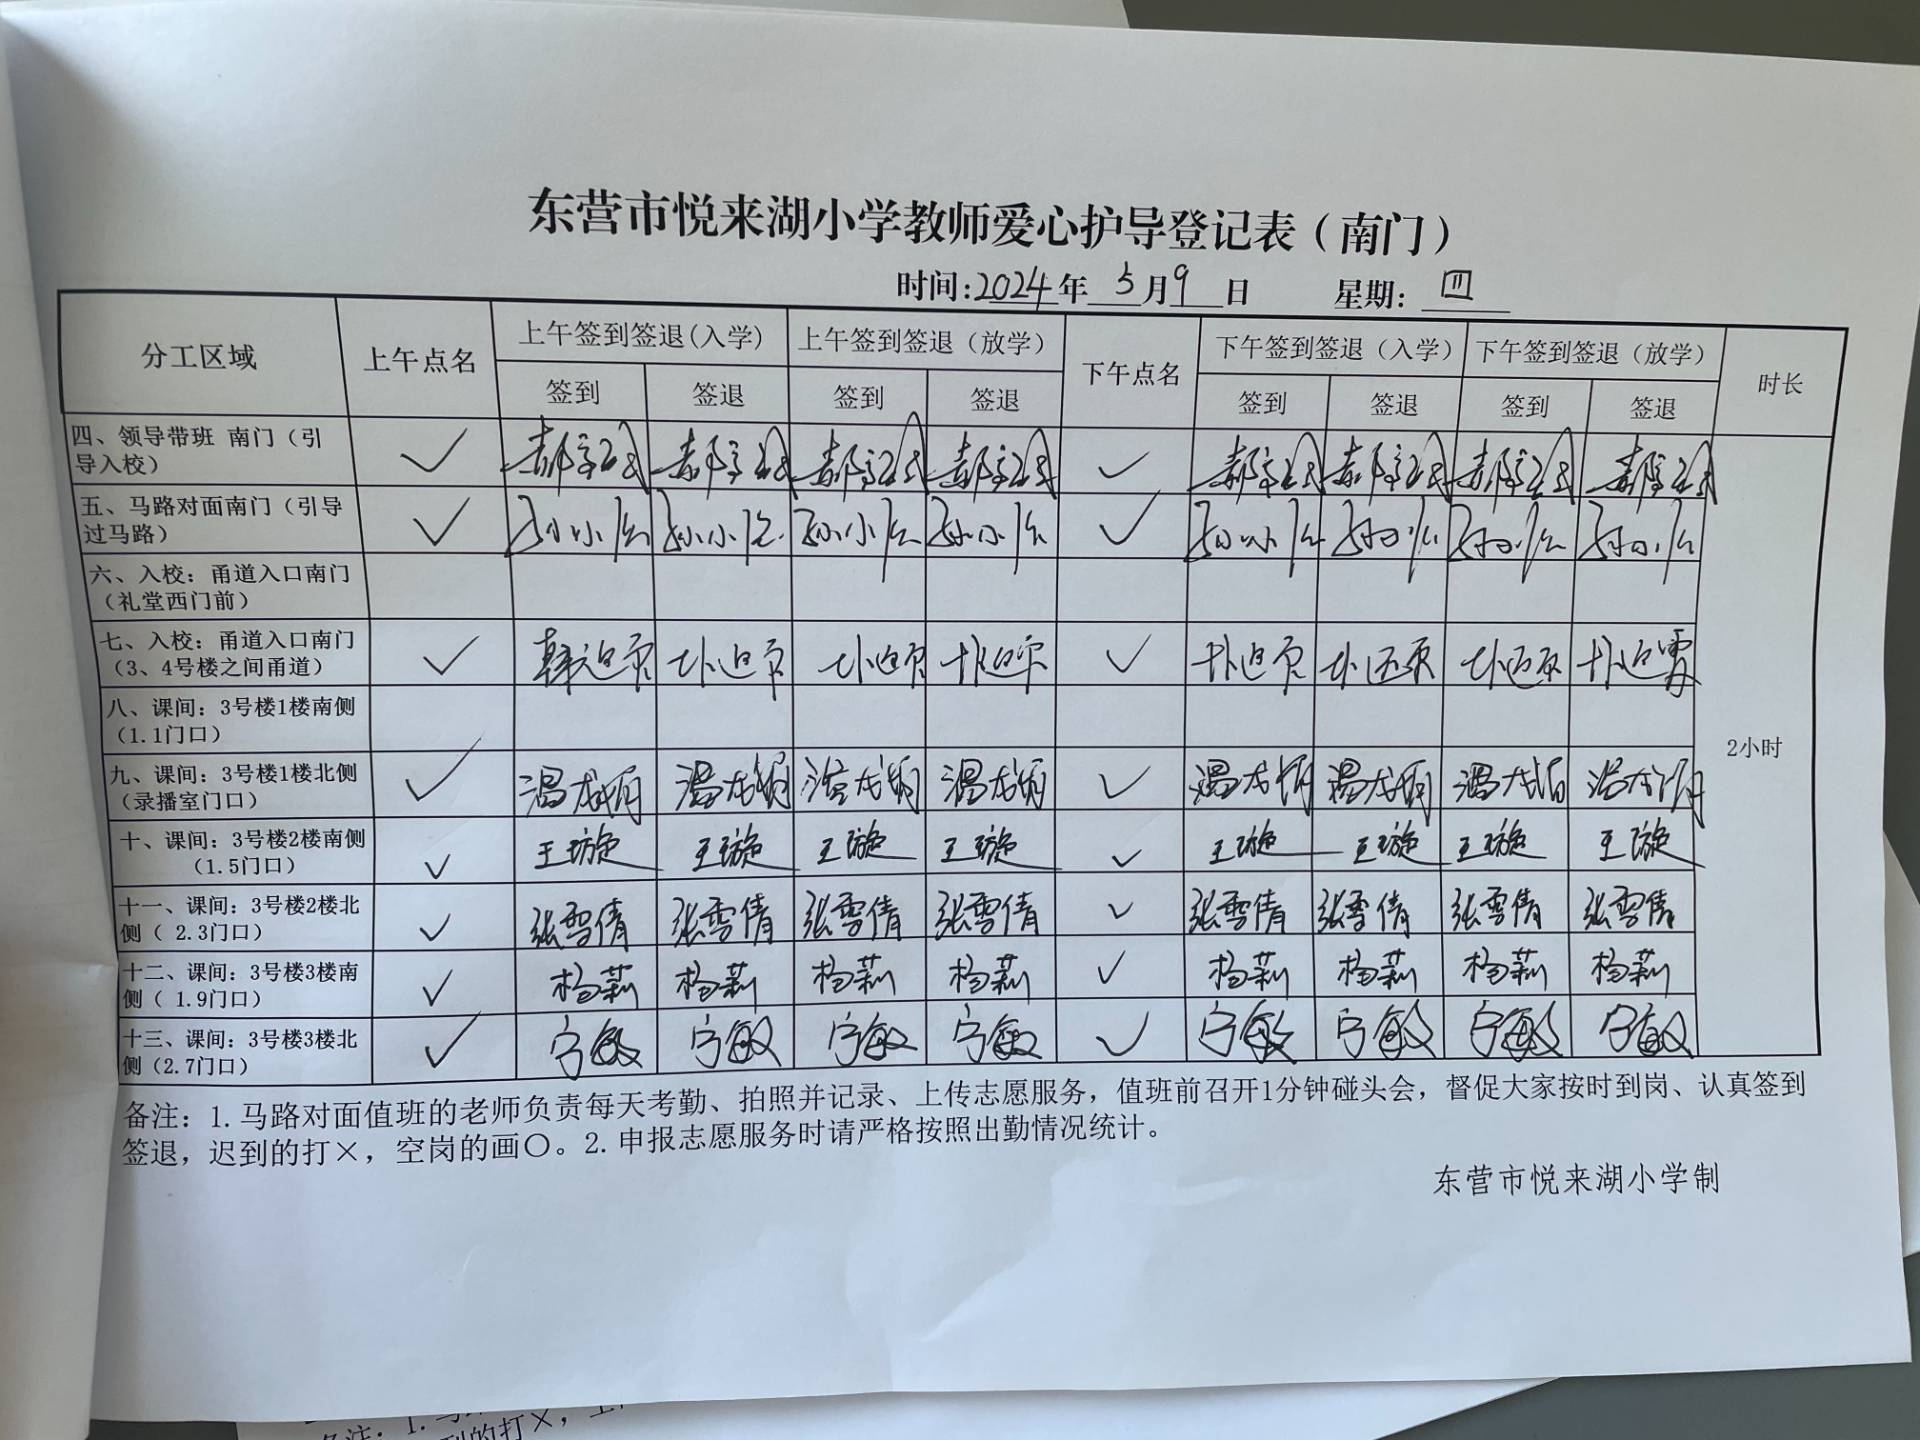 东营市悦来湖小学教师爱心护导登记表（南门）
时间:2024年 5月9 日 星期: 四
分工区域 上午点名 上午签到签退(入学) 上午签到签退（放学） 下午点名 下午签到签退（入学） 下午签到签退（放学） 时长
签到 签退 签到 签退 签到 签退 签到 签退
四、领导带班 南门（引
导入校）
✓ ✓
五、马路对面南门（引导
过马路）
✓ 孙小 孙小 孙小 孙小 ✓ 孙小 孙小 孙小 孙小
六、入校：甬道入口南门
（礼堂西门前）
七、入校：甬道入口南门
（3、4号楼之间甬道）
✓ ✓
八、课间：3号楼1楼南侧
（1.1门口）
2小时
九、课间：3号楼1楼北侧
（录播室门口）
✓ 温 温 温 温 ✓ 温 温 温 温
十、课间：3号楼2楼南侧
（1.5门口）
✓ 王璇 王璇 王璇 王璇 ✓ 王璇 王璇 王璇 王璇
十一、课间：3号楼2楼北
侧（ 2.3门口）
✓ 张雪倩 张雪倩 张雪倩 张雪倩 ✓ 张雪倩 张雪倩 张雪倩 张雪倩
十二、课间：3号楼3楼南
侧（ 1.9门口）
✓ 杨莉 杨莉 杨莉 杨莉 ✓ 杨莉 杨莉 杨莉 杨莉
十三、课间：3号楼3楼北
侧（2.7门口）
✓ 宁敏 宁敏 宁敏 宁敏 ✓ 宁敏 宁敏 宁敏 宁敏
备注：1.马路对面值班的老师负责每天考勤、拍照并记录、上传志愿服务，值班前召开1分钟碰头会，督促大家按时到岗、认真签到
签退，迟到的打×，空岗的画〇。2.申报志愿服务时请严格按照出勤情况统计。
东营市悦来湖小学制
备注：1.马
到的打×，